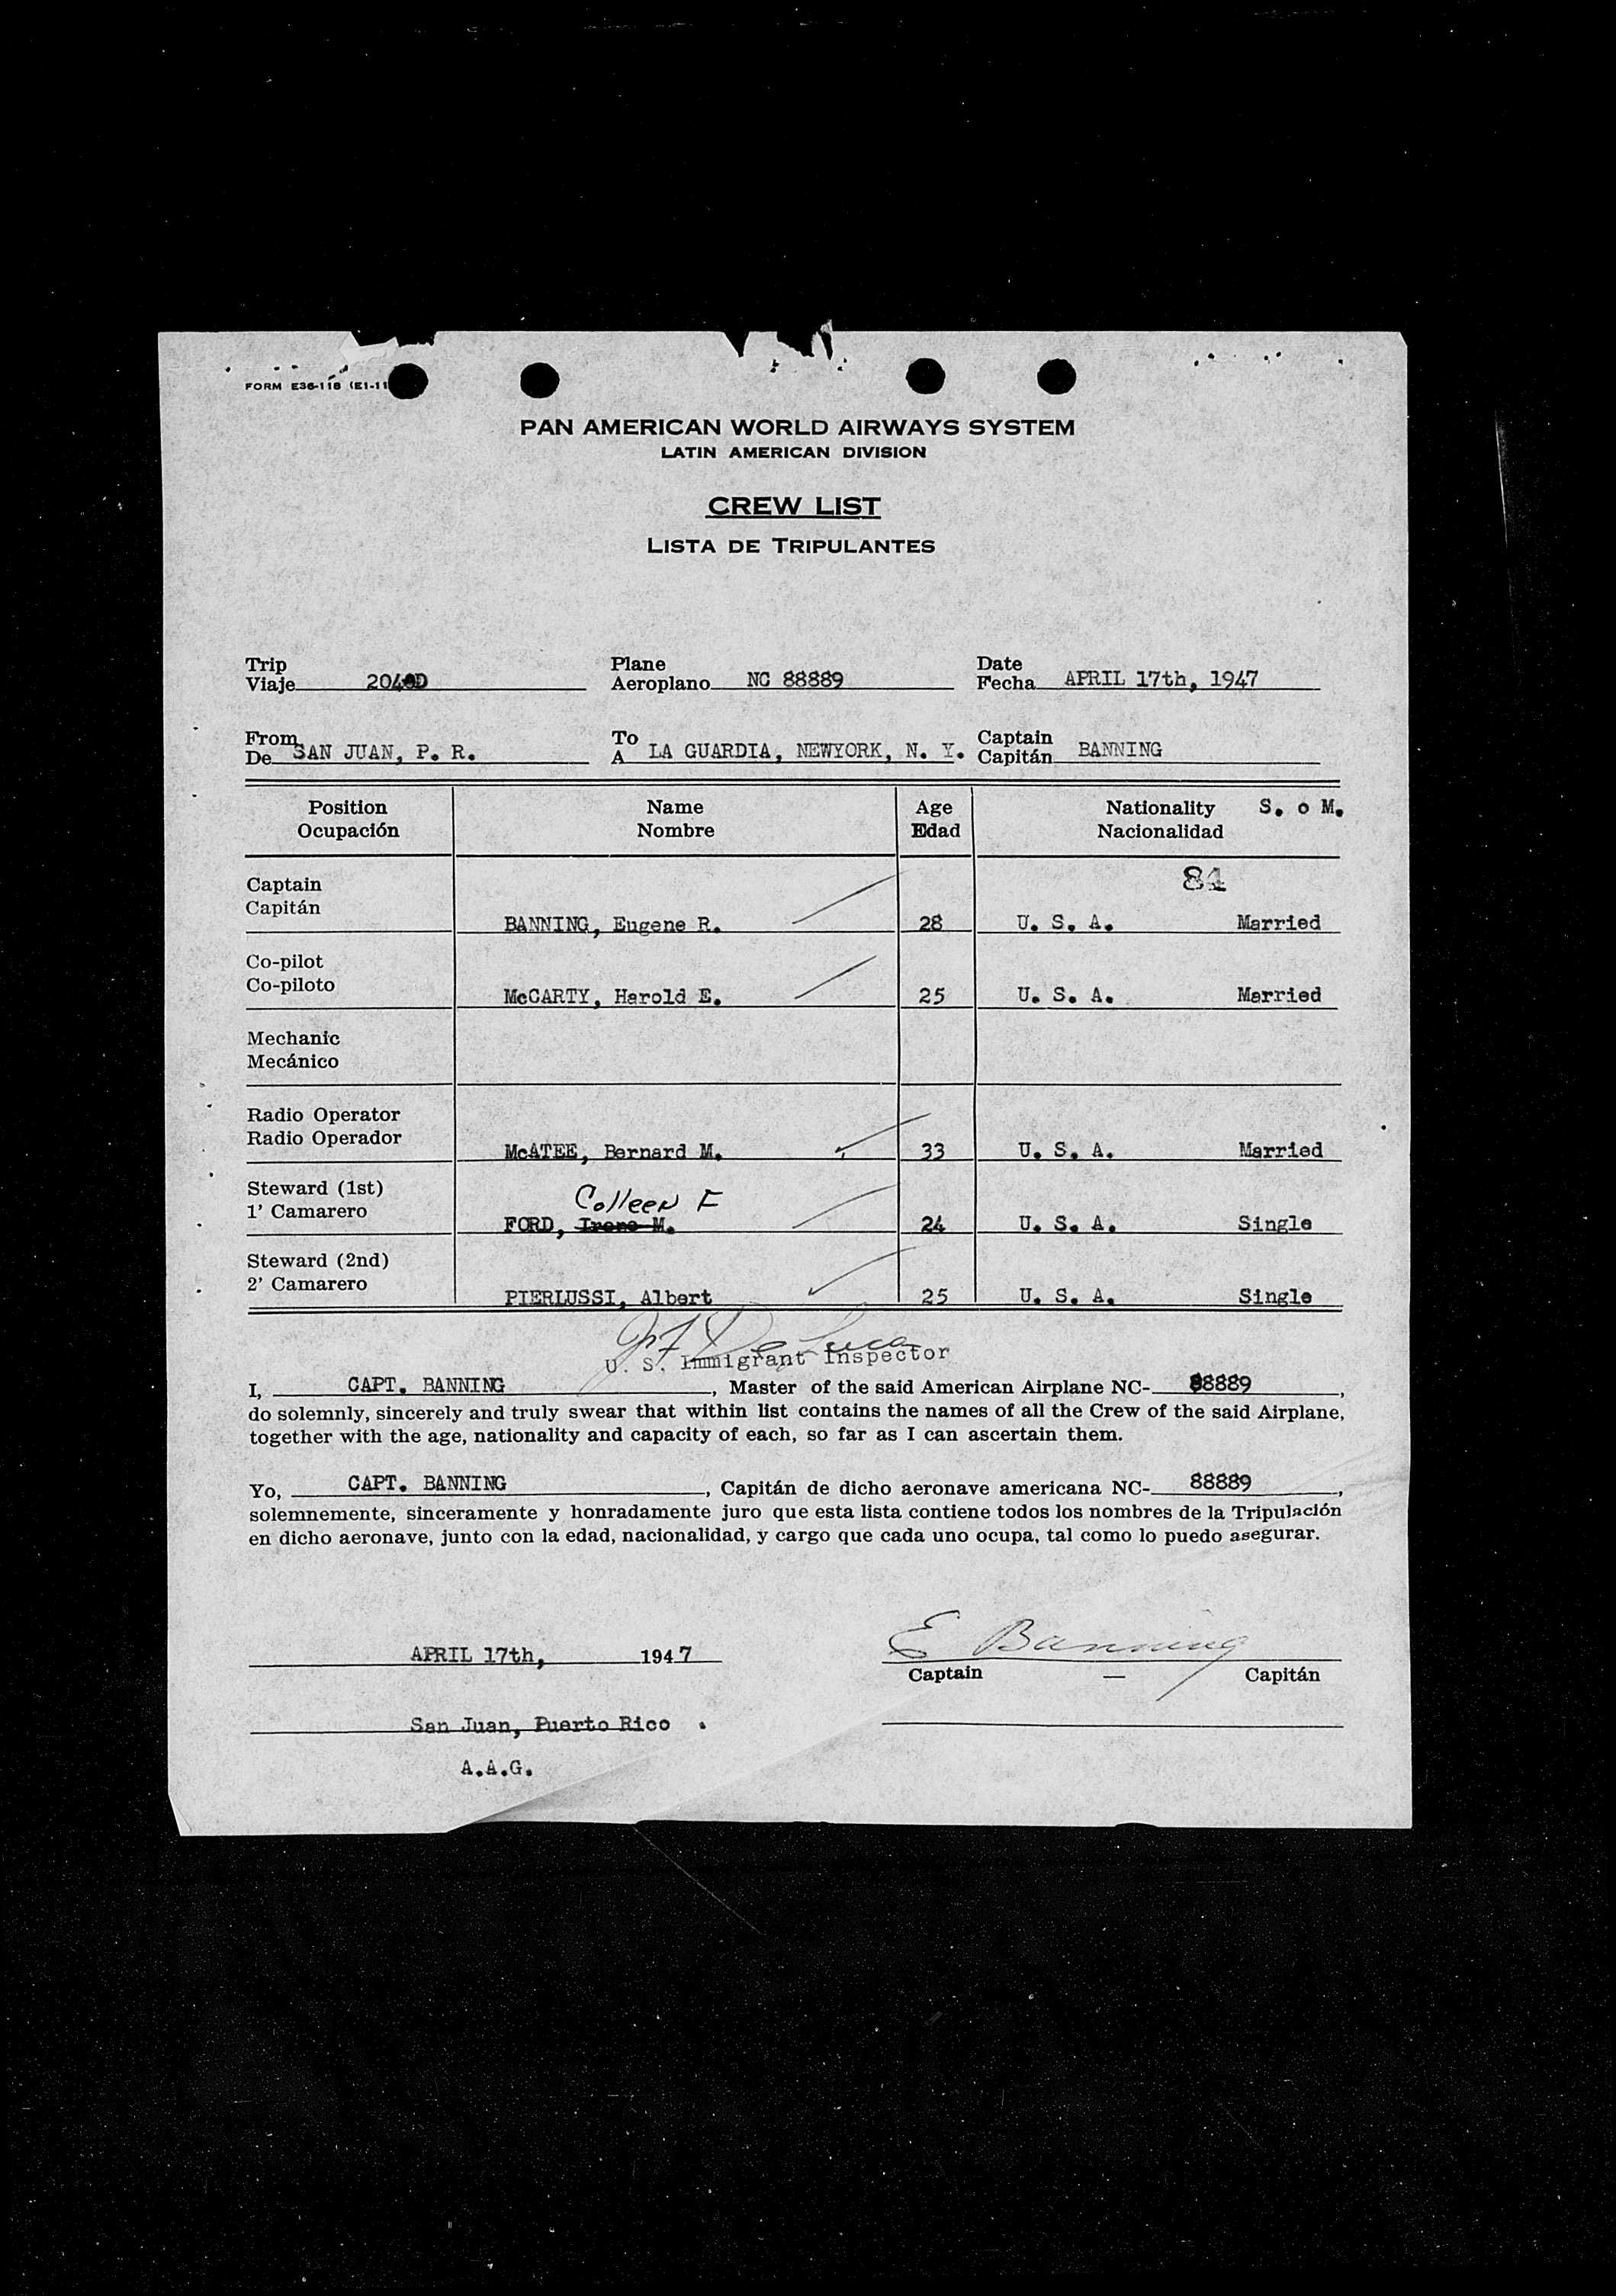 FORM E36-118 (E1-11
PAN AMERICAN WORLD AIRWAYS SYSTEM
LATIN AMERICAN DIVISION
CREW LIST
LISTA DE TRIPULANTES
Trip Plane Date
Viaje Aeroplano NC 88889 Fecha APRIL 17th, 1947
From To Captain
De SAN JUAN, P. R. A LA GUARDIA, NEWYORK, N. Y. Capitán BANNING
Position Name Age Nationality S. o M.
Ocupación Nombre Edad Nacionalidad
84
Captain
Capitán
BANNING, Eugene R. 28 U. S. A. Married
Co-pilot
Co-piloto
McCARTY, Harold E. 25 U. S. A. Married
Mechanic
Mecánico
Radio Operator
Radio Operador
McATEE, Bernard M. 33 U. S. A. Married
Steward (1st)
1' Camarero Colleen F
FORD, Irene M. 24 U. S. A. Single
Steward (2nd)
2' Camarero
PIERLUSSI, Albert 25 U. S. A. Single
U. S. Immigrant Inspector
I, CAPT. BANNING, Master of the said American Airplane NC- 88889,
do solemnly, sincerely and truly swear that within list contains the names of all the Crew of the said Airplane,
together with the age, nationality and capacity of each, so far as I can ascertain them.
Yo, CAPT. BANNING, Capitán de dicho aeronave americana NC- 88889,
solemnemente, sinceramente y honradamente juro que esta lista contiene todos los nombres de la Tripulación
en dicho aeronave, junto con la edad, nacionalidad, y cargo que cada uno ocupa, tal como lo puedo asegurar.
E Banning
APRIL 17th, 1947
Captain — Capitán
San Juan, Puerto Rico .
A.A.G.